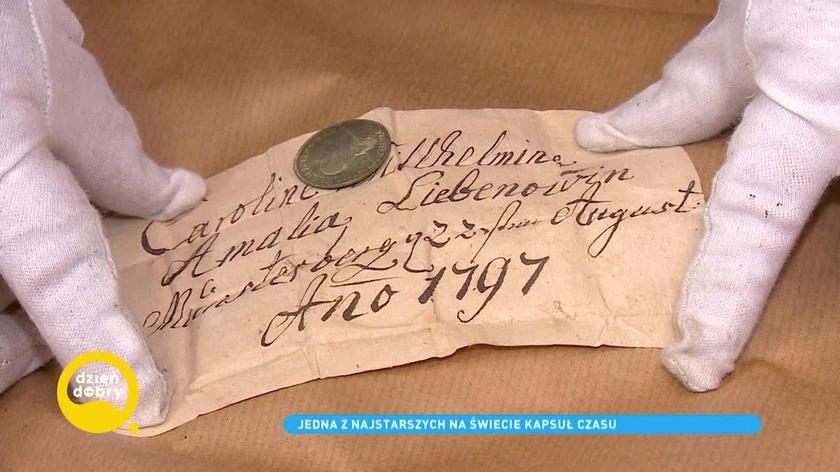 Caroline Willhelmina
Amalia Liebenowin
Münsterberg 22 August
Año 1797
dzień
dobry
JEDNA Z NAJSTARSZYCH NA ŚWIECIE KAPSUŁ CZASU